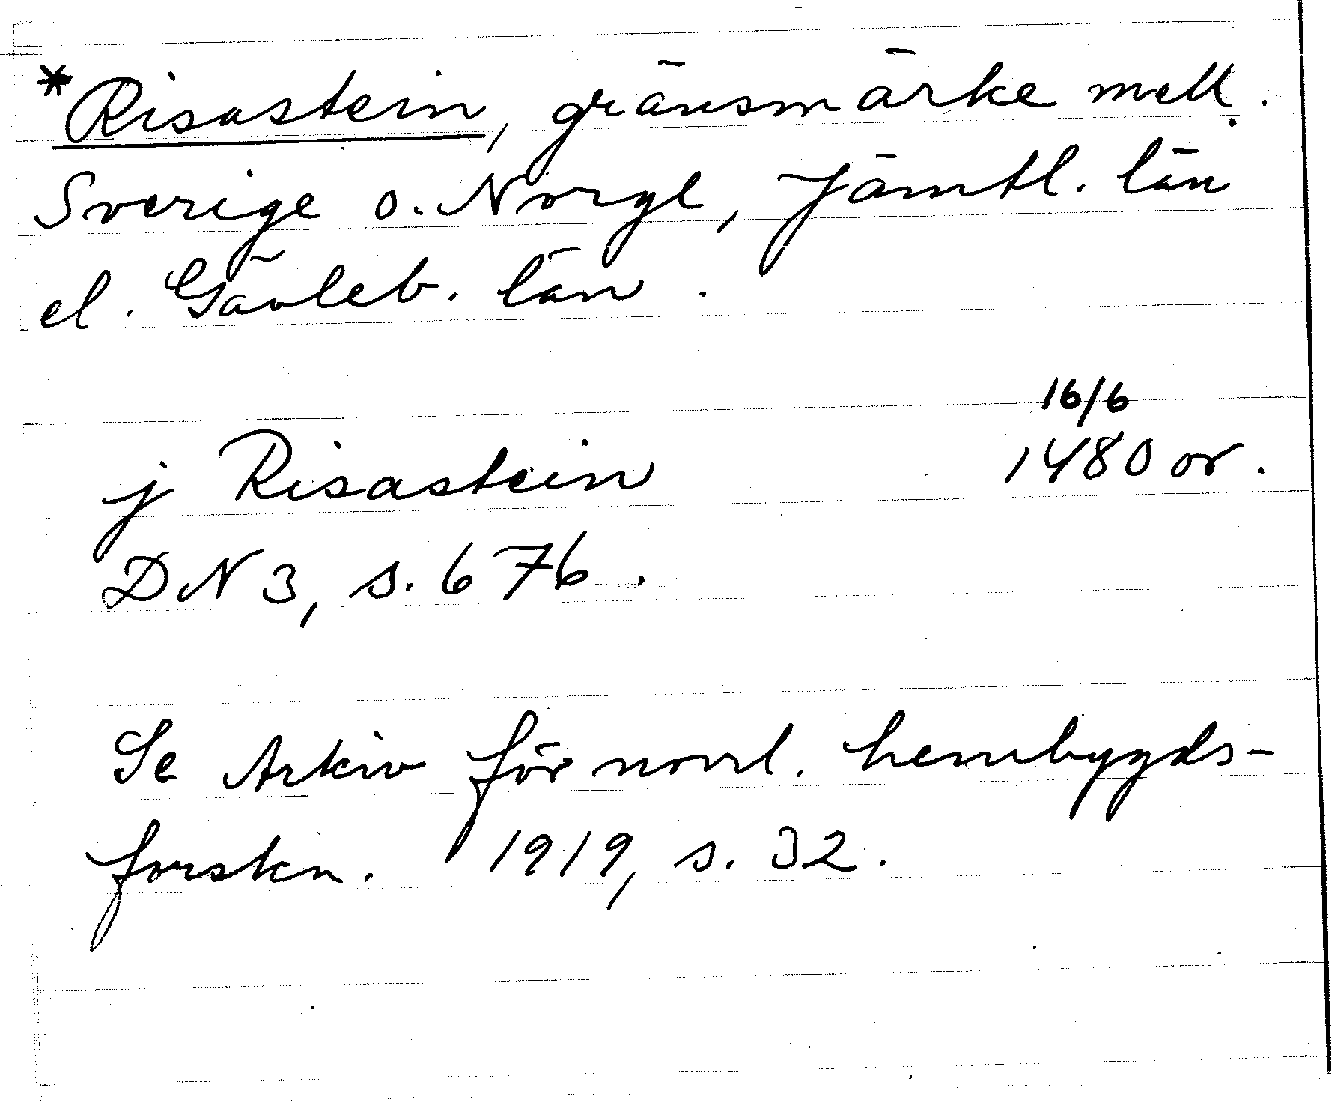 *Risastein, gränsmärke mell.
Sverige o. Norge, Jämtl. län
el. Gävleb. län.
16/6
j Risastein 1480 or.
DN 3, s. 676.
Se Arkiv för norrl. hembygds-
forskn. 1919, s. 32.